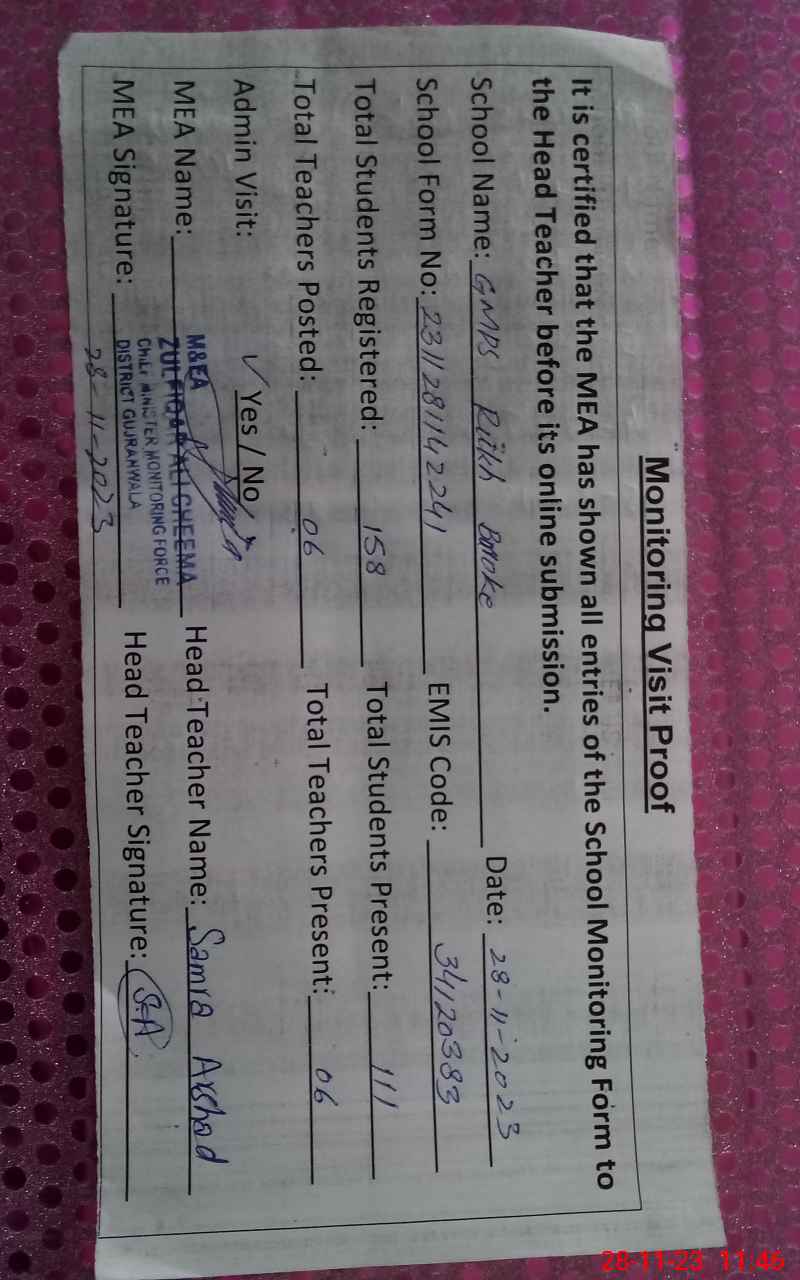 Monitoring Visit Proof
It is certified that the MEA has shown all entries of the School Monitoring Form to
the Head Teacher before its online submission.
School Name: GMPS Rukh Baroke Date: 28-11-2023
School Form No: 2311281142241 EMIS Code: 34120383
Total Students Registered: 158 Total Students Present: 111
Total Teachers Posted: 06 Total Teachers Present: 06
Admin Visit: ✓ Yes / No
M&EA
MEA Name: ZULFIQAR ALI CHEEMA Head Teacher Name: Samra Arshad
CHIEF MINISTER MONITORING FORCE
MEA Signature: DISTRICT GUJRANWALA Head Teacher Signature: S.A
28-11-2023
28-11-23 11:46